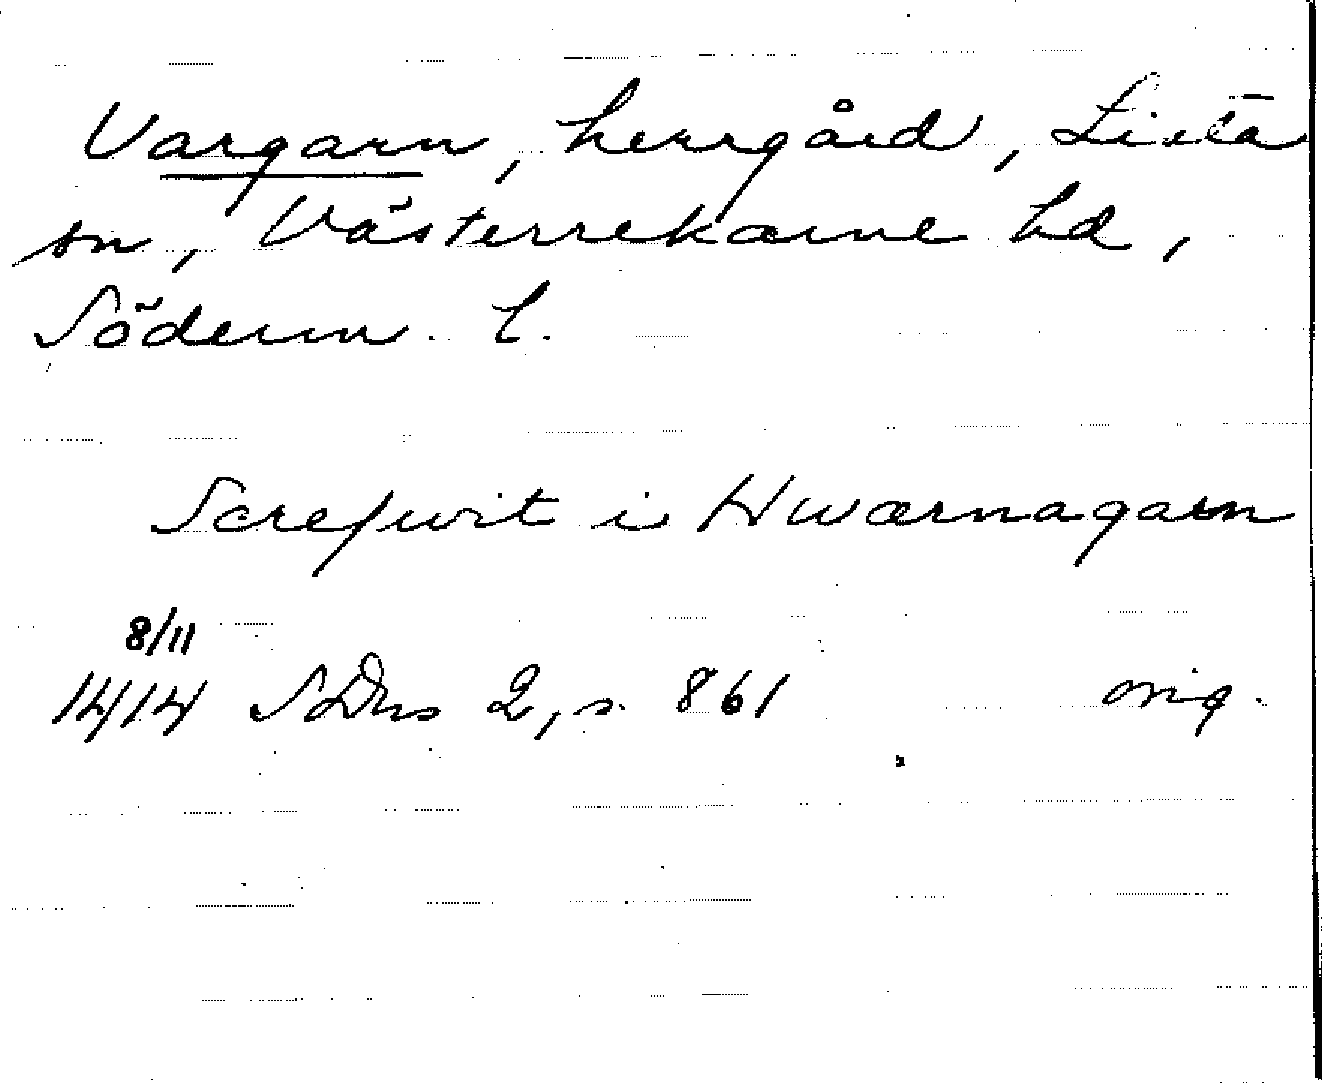 Vargarn, herrgård, Lista
sn, Västerrekarne hd,
Söderm. l.
Screfwit i Hwærnagarn
8/11
1414 SDns 2, s. 861 orig.